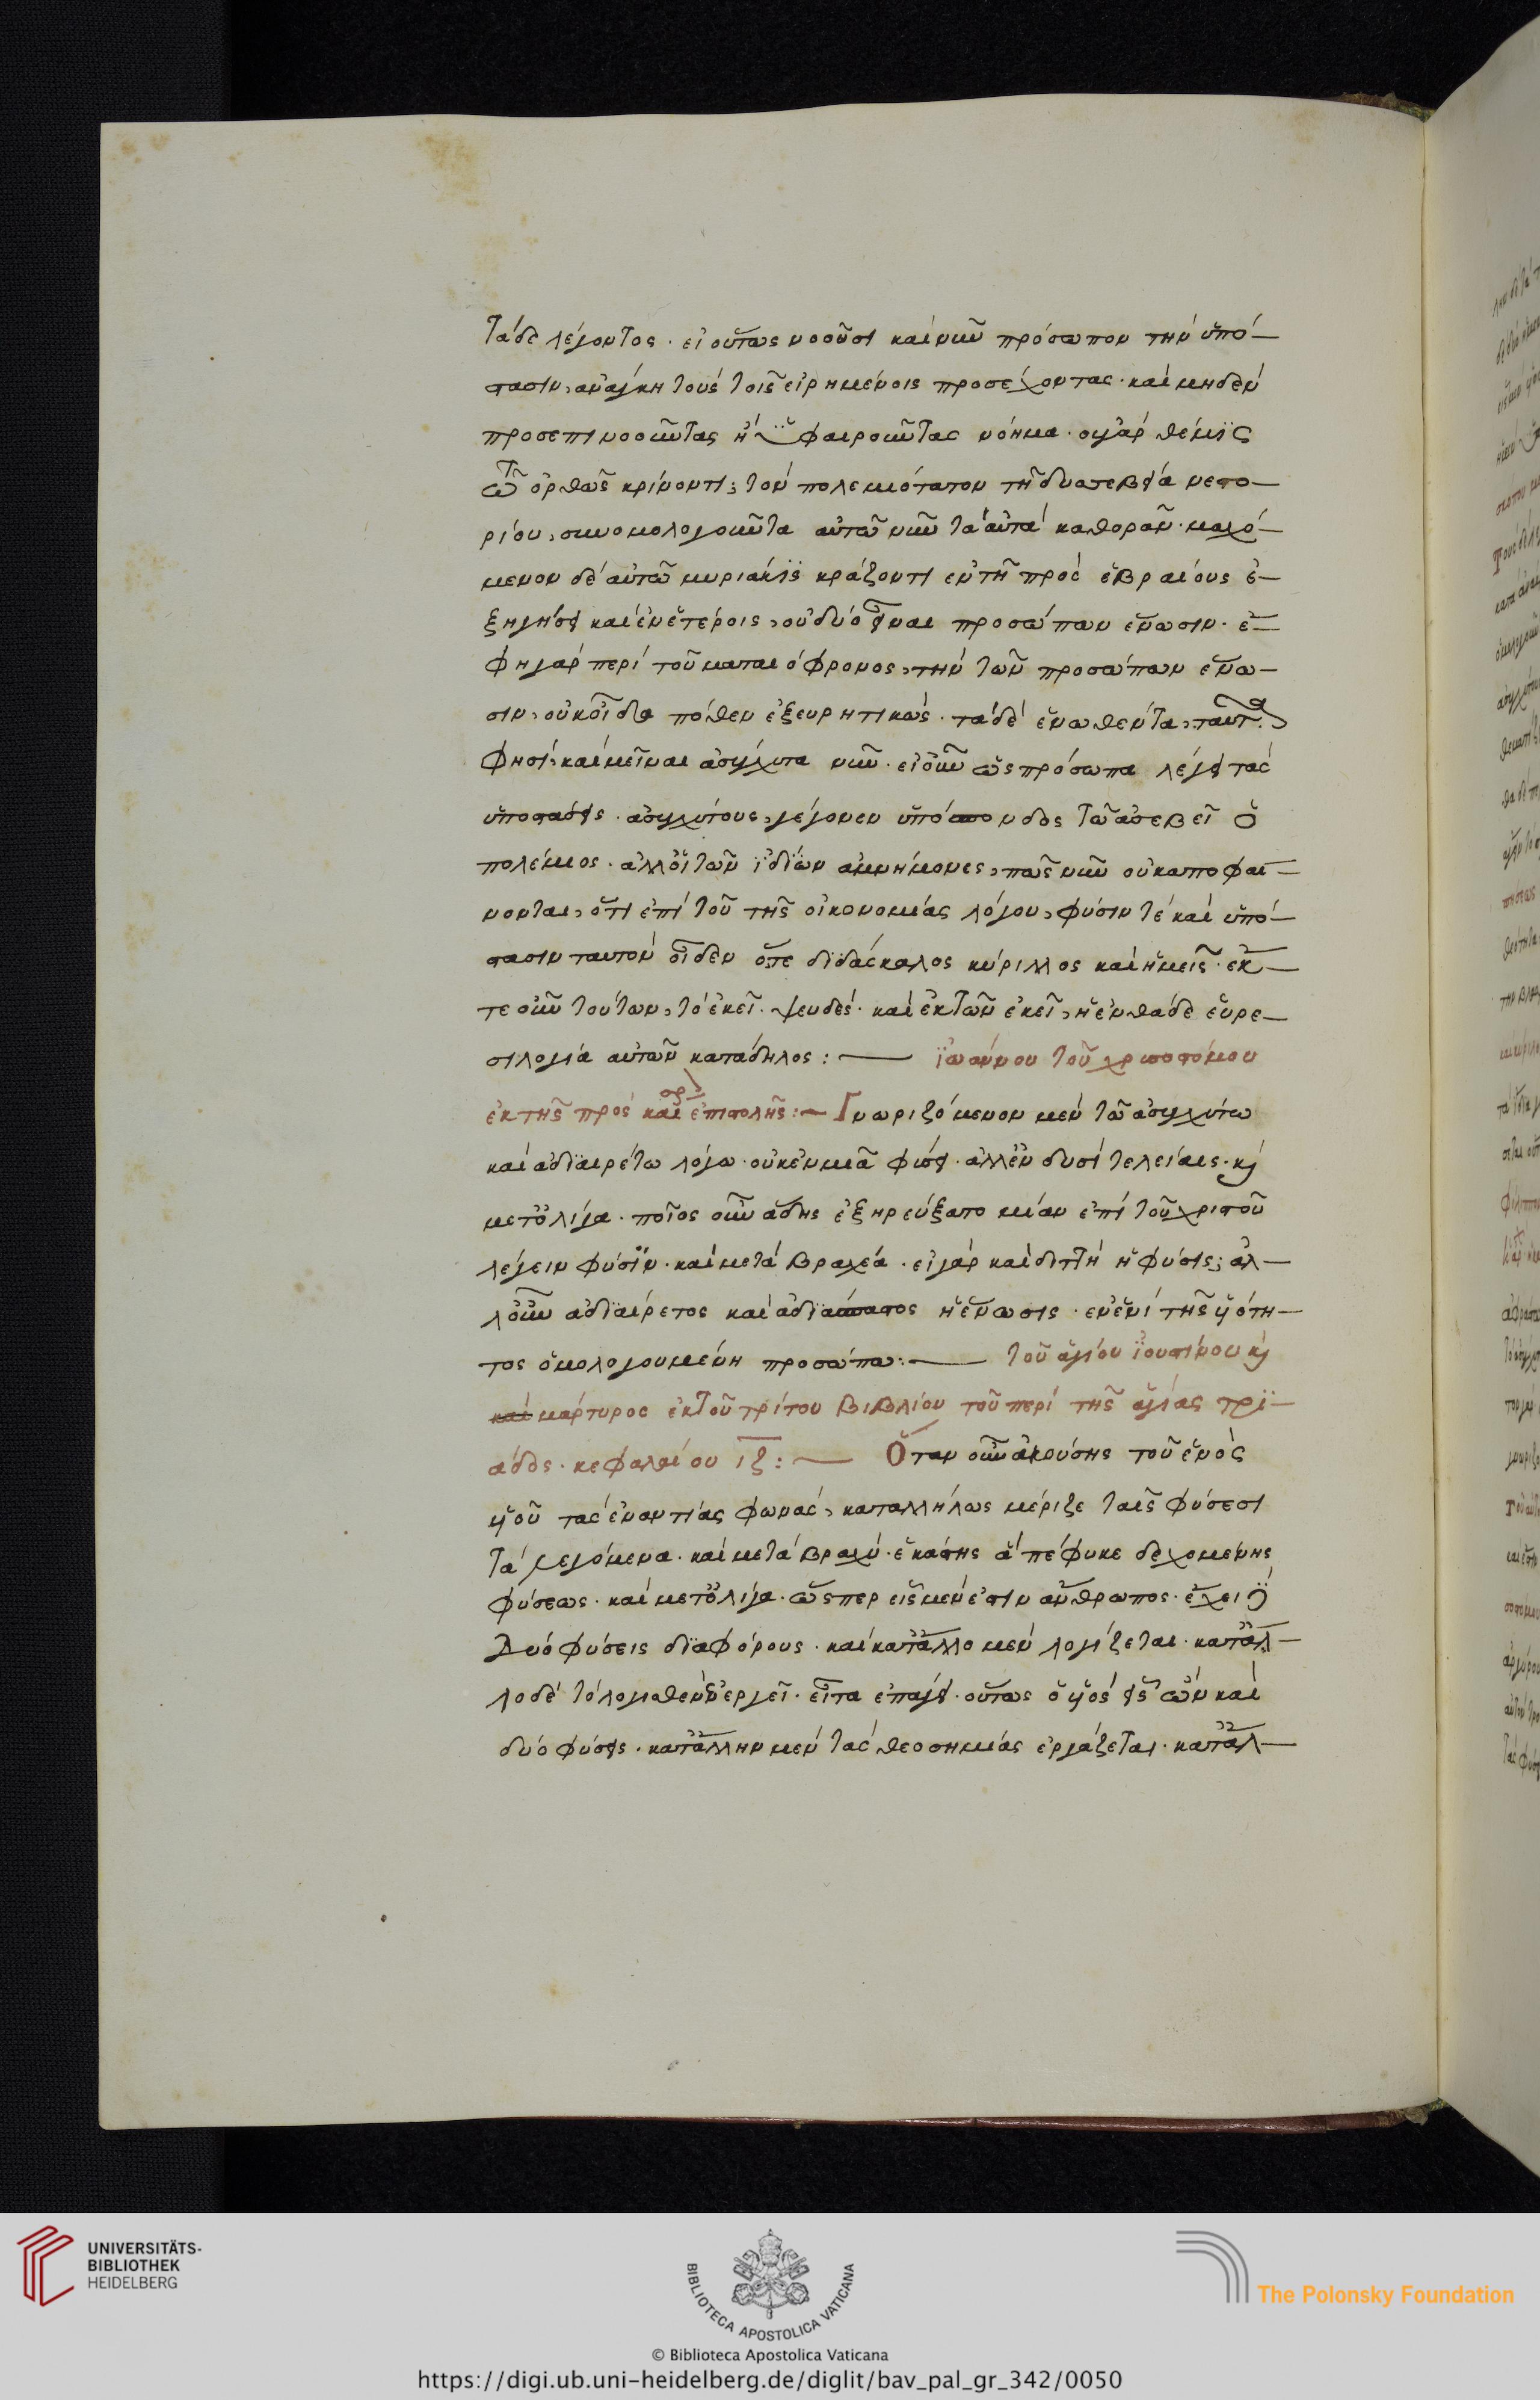 τάδε λέγοντος · εἰ οὕτως νοοῦσι καὶ νῦν πρόσωπον τὴν ὑπό-
στασιν, ἀνάγκη τοὺς τοῖς εἰρημένοις προσέχοντας · καὶ μηδὲν
προσεπινοοῦντας ἢ ὑφαιροῦντας νόημα · οὐ γὰρ θέμϊς
τῷ ὀρθῶς κρίνοντι; τὸν πολεμιότατον τῇ δυσσεβείᾳ νεστο-
ρίου, συνομολογοῦντα αὐτῷ νῦν τὰ αὐτὰ καθορᾶν · μαχό-
μενον δὲ αὐτῷ μυριάκϊς κράζοντι ἐν τῇ πρὸς ἑβραίους ἐ-
ξηγήσει καὶ ἐν ἑτέροις, οὐ δύο εἶναι προσώπων ἕνωσιν · ἔ-
φη γὰρ περὶ τοῦ ματαιόφρονος, τὴν τῶν προσώπων ἕνω-
σιν, οὐκ οἶδα πόθεν ἐξευρητικώς · τὰ δὲ ἑνωθέντα, ταῦτα
φησὶ, καὶ μεῖναι ἀσύγχυτα νῦν · εἰ οὖν ὡς πρόσωπα λέγει τὰς
ὑποστάσεις · ἀσυγχύτους, γέγονεν ὑπόσπονδος τῷ ἀσεβεῖ ὁ
πολέμος · ἀλλ' οἱ τῶν ἰδίων ἀμνήμονες, πῶς νῦν οὐκ ἀποφαί-
νονται, ὅτι ἐπὶ τοῦ τῆς οἰκονομίας λόγου, φύσιν τὲ καὶ ὑπό-
στασιν ταυτὸν οἶδεν ὅτε διδάσκαλος κύριλλος καὶ ἡμεῖς · ἐκ
τε οὖν τούτων, τὸ ἐκεῖ · ψευδές · καὶ ἐκ τῶν ἐκεῖ, ἡ ἐνθάδε εὑρε-
σιλογία αὐτῶν κατάδηλος : — ἰωάννου τοῦ χρυσοστόμου
ἐκ τῆς πρὸς και ἐπιστολῆς : — Γνωριζόμενον μὲν τῷ ἀσυγχύτω
καὶ ἀδϊαιρέτω λόγω · οὐκ ἐν μιᾷ φύσει · ἀλλ' ἐν δυσὶ τελείαις · κὶ
μετ' ὀλίγα · ποῖος οὖν ἅδης ἐξηρεύξατο μίαν ἐπὶ τοῦ χριστοῦ
λέγειν φύσϊν · καὶ μετὰ βραχέα · εἰ γὰρ καὶ διττὴ ἡ φύσις; ἀλ-
λ' οὖν ἀδϊαίρετος καὶ ἀδϊάσπαστος ἡ ἕνωσις · ἐν ἑνὶ τῆς υἱότη-
τος ὁμολογουμένη προσώπω : — τοῦ ἁγίου ἰουστίνου κὶ
καὶ μάρτυρος ἐκ τοῦ τρίτου βιβλίου τοῦ περὶ τῆς ἁγίας τρϊ-
άδος · κεφαλαίου ιζ : — Ὅταν οὖν ἀκούσης τοῦ ἑνὸς
υἱοῦ τὰς ἐναντίας φωνὰς, καταλλήλως μέριζε ταῖς φύσεσι
τὰ λεγόμενα · καὶ μετὰ βραχύ · ἑκάστης ἃ πέφυκε δεχομένης
φύσεως · καὶ μετ' ὀλίγα · ὥσπερ εἷς μὲν ἐστιν ἄνθρωπος · ἔχει δὲ
Δύο φύσεις διαφόρους · καὶ κατ' ἄλλο μὲν λογίζεται · κατ' ἄλ-
λο δὲ τὸ λογισθὲν ἐνεργεῖ · εἶτα ἐπάγει · οὕτως ὁ υἱὸς εἷς ὢν καὶ
δύο φύσεις · κατ' ἄλλην μὲν τὰς θεοσημίας ἐργάζεται · κατ' ἄλ-
UNIVERSITÄTS-
BIBLIOTHEK
HEIDELBERG
BIBLIOTECA APOSTOLICA VATICANA
The Polonsky Foundation
© Biblioteca Apostolica Vaticana
https://digi.ub.uni-heidelberg.de/diglit/bav_pal_gr_342/0050